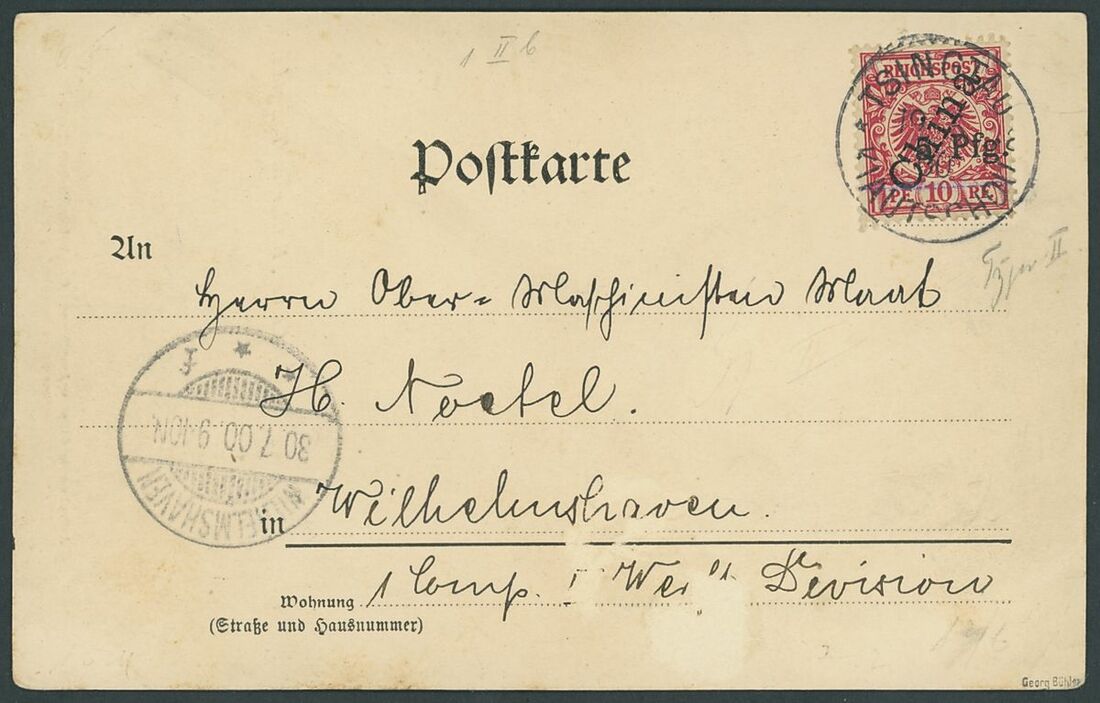 1 II b
REICHSPOST
TSINGTAU
China
5 Pfg.
10
KIAUTSCHOU
Postkarte
An
Herrn Ober-Maschinisten Maat
Type II
H. Noetel.
30.7.00. 9-10N.
WILHELMSHAVEN
in Wilhelmshaven.
1 Comp. I Division
Wohnung
(Straße und Hausnummer)
Georg Bühler